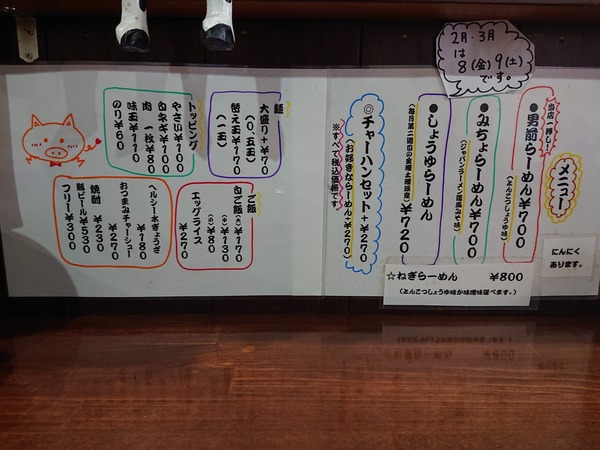 2月・3月
は
8(金)9(土)
です。
メニュー
当店一押し!
●男前らーめん¥700
(とんこつしょうゆ味)
●みちょらーめん¥700
(ジャパンラーメン国風みそ味)
●しょうゆらーめん
¥720
◎チャーハンセット+¥270
(お好きならーめん+¥270)
※すべて税込価格です。
にんにく
あります。
☆ねぎらーめん ¥800
(とんこつしょうゆ味か味噌味選べます。)
麺
大盛り+¥70
(0.5玉)
替え玉¥170
(一玉)
トッピング
やさい¥100
白ネギ¥100
肉 一枚¥80
味玉¥110
のり¥60
ご飯
白ご飯(大)¥170
(中)¥130
(小)¥80
エッグライス
¥270
ヘルシー水ぎょうざ
¥180
おつまみチャーシュー
¥270
焼酎 ¥230
瓶ビール¥530
フリー¥300